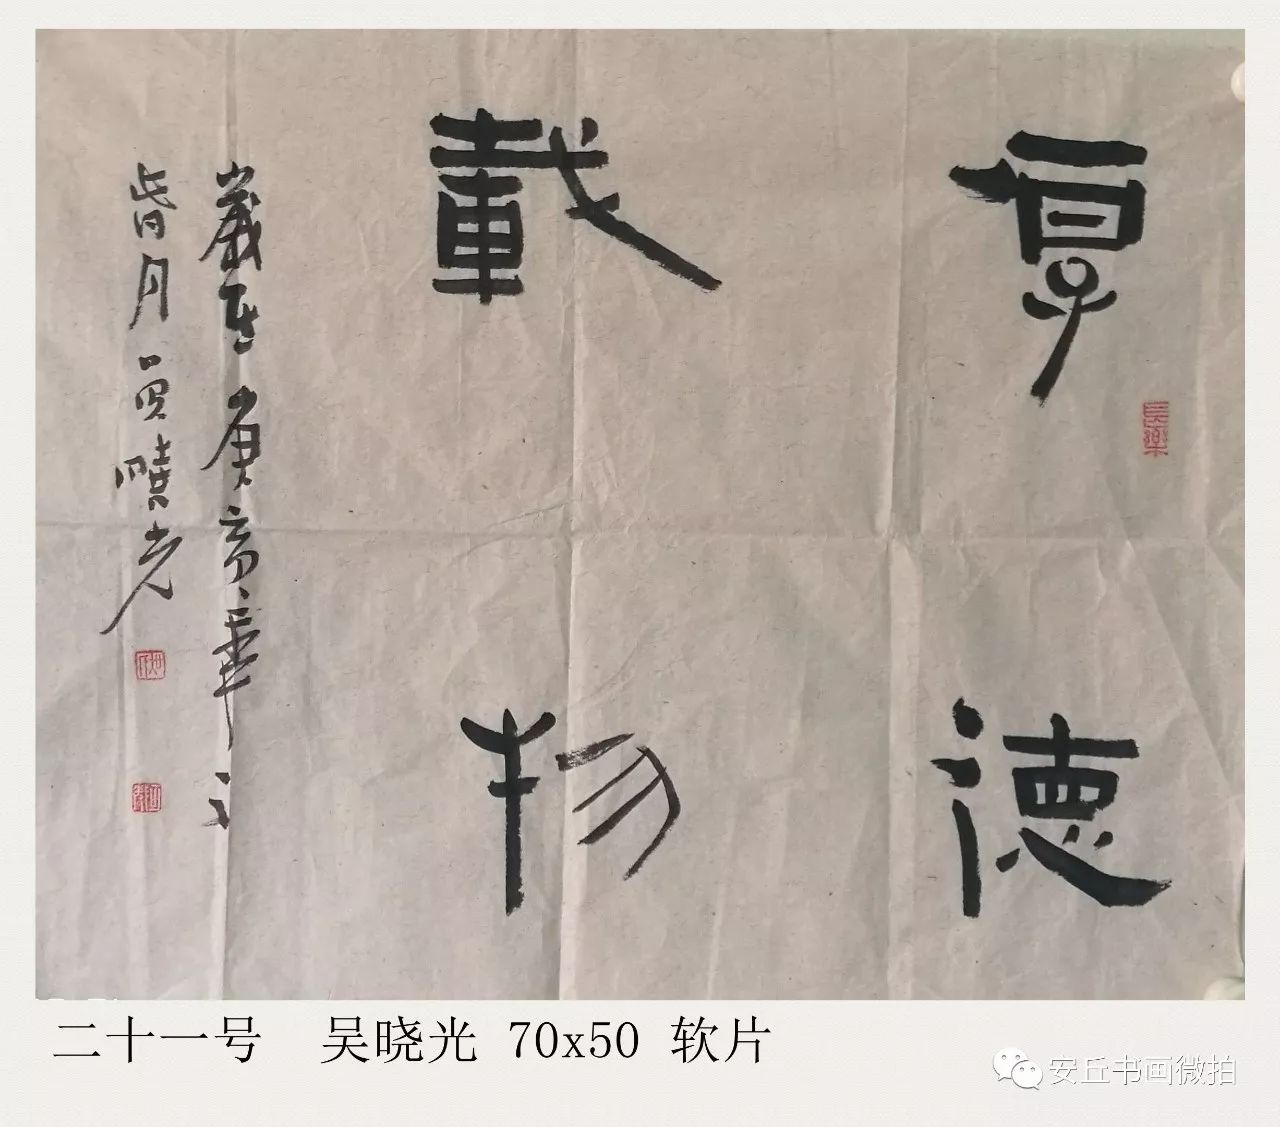 厚德
載物
長樂
歲在庚
月吳曉光
二十一号 吴晓光 70x50 软片
安丘书画微拍